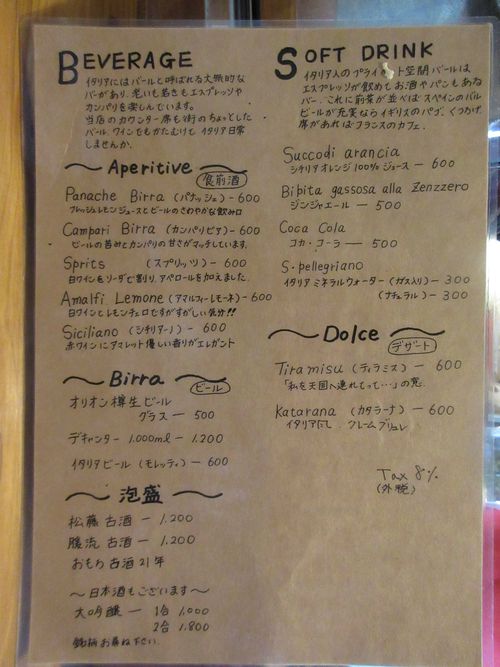 BEVERAGE
イタリアにはバールと呼ばれる大衆的な
バーがあり、老いも若きもエスプレッソや
カンパリを楽しんでいます。
当店のカウンター席も街のちょっとした
バール。ワインでもかたむけて イタリア日常
しませんか。
Aperitive
食前酒
Panache Birra (パナッシェ) - 600
フレッシュレモンジュースとビールのさわやかな飲み口
Campari Birra (カンパリビア) - 600
ビールの苦みとカンパリの甘さがマッチしています。
Sprits (スプリッツ) - 600
白ワインをソーダで割り、アペロールを加えました。
Amalfi Lemone (アマルフィーレモーネ) - 600
白ワインとレモンチェロですがすがしい気分!!
Siciliano (シチリアーノ) - 600
赤ワインにアマレット 優しい香りがエレガント
Birra
ビール
オリオン樽生ビール
グラス - 500
デキャンター 1,000ml - 1,200
イタリアビール (モレッティ) - 600
泡盛
松藤 古酒 - 1,200
古酒 - 1,200
おもろ 古酒 21年
～日本酒もございます～
大吟醸 - 1合 1,000
2合 1,800
銘柄お尋ね下さい。
SOFT DRINK
イタリア人のプライベート空間バールは
エスプレッソが飲めてお酒やパンもある
バー。これに前菜が並べばスペインのバル
ビールが充実ならイギリスのパブ、くつろげる
席があればフランスのカフェ。
Succodi arancia
シチリアオレンジ100%ジュース - 600
Bibita gassosa alla Zenzzero
ジンジャエール - 500
Coca Cola
コカ・コーラ - 500
S.pellegriano
イタリア ミネラルウォーター (ガス入り) - 300
(ナチュラル) - 300
Dolce
デザート
Tiramisu (ティラミス) - 600
「私を天国へ連れてって…」の意。
Katarana (カタラーナ) - 600
イタリア クレームブリュレ
Tax 8%
(外税)